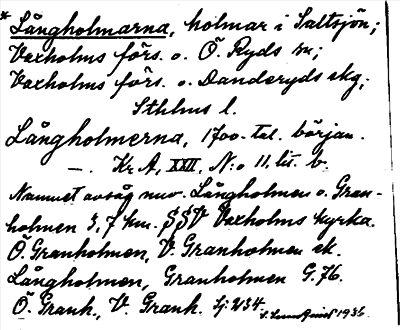 * Långholmarna, holmar i Saltsjön;
Vaxholms förs. o. Ö. Ryds sn;
Vaxholms förs. o. Danderyds skg;
Sthlms l.
Långholmerna, 1700-tal. början.
—. Kr. A, XXII, N:o 11, lit. b.
Namnet avsåg nuv. Långholmen o. Gran-
holmen 3,7 km. SSV Vaxholms kyrka.
Ö. Granholmen, V. Granholmen ek.
Långholmen, Granholmen G. 76.
Ö. Granh., V. Granh. Sj: 234
1936.